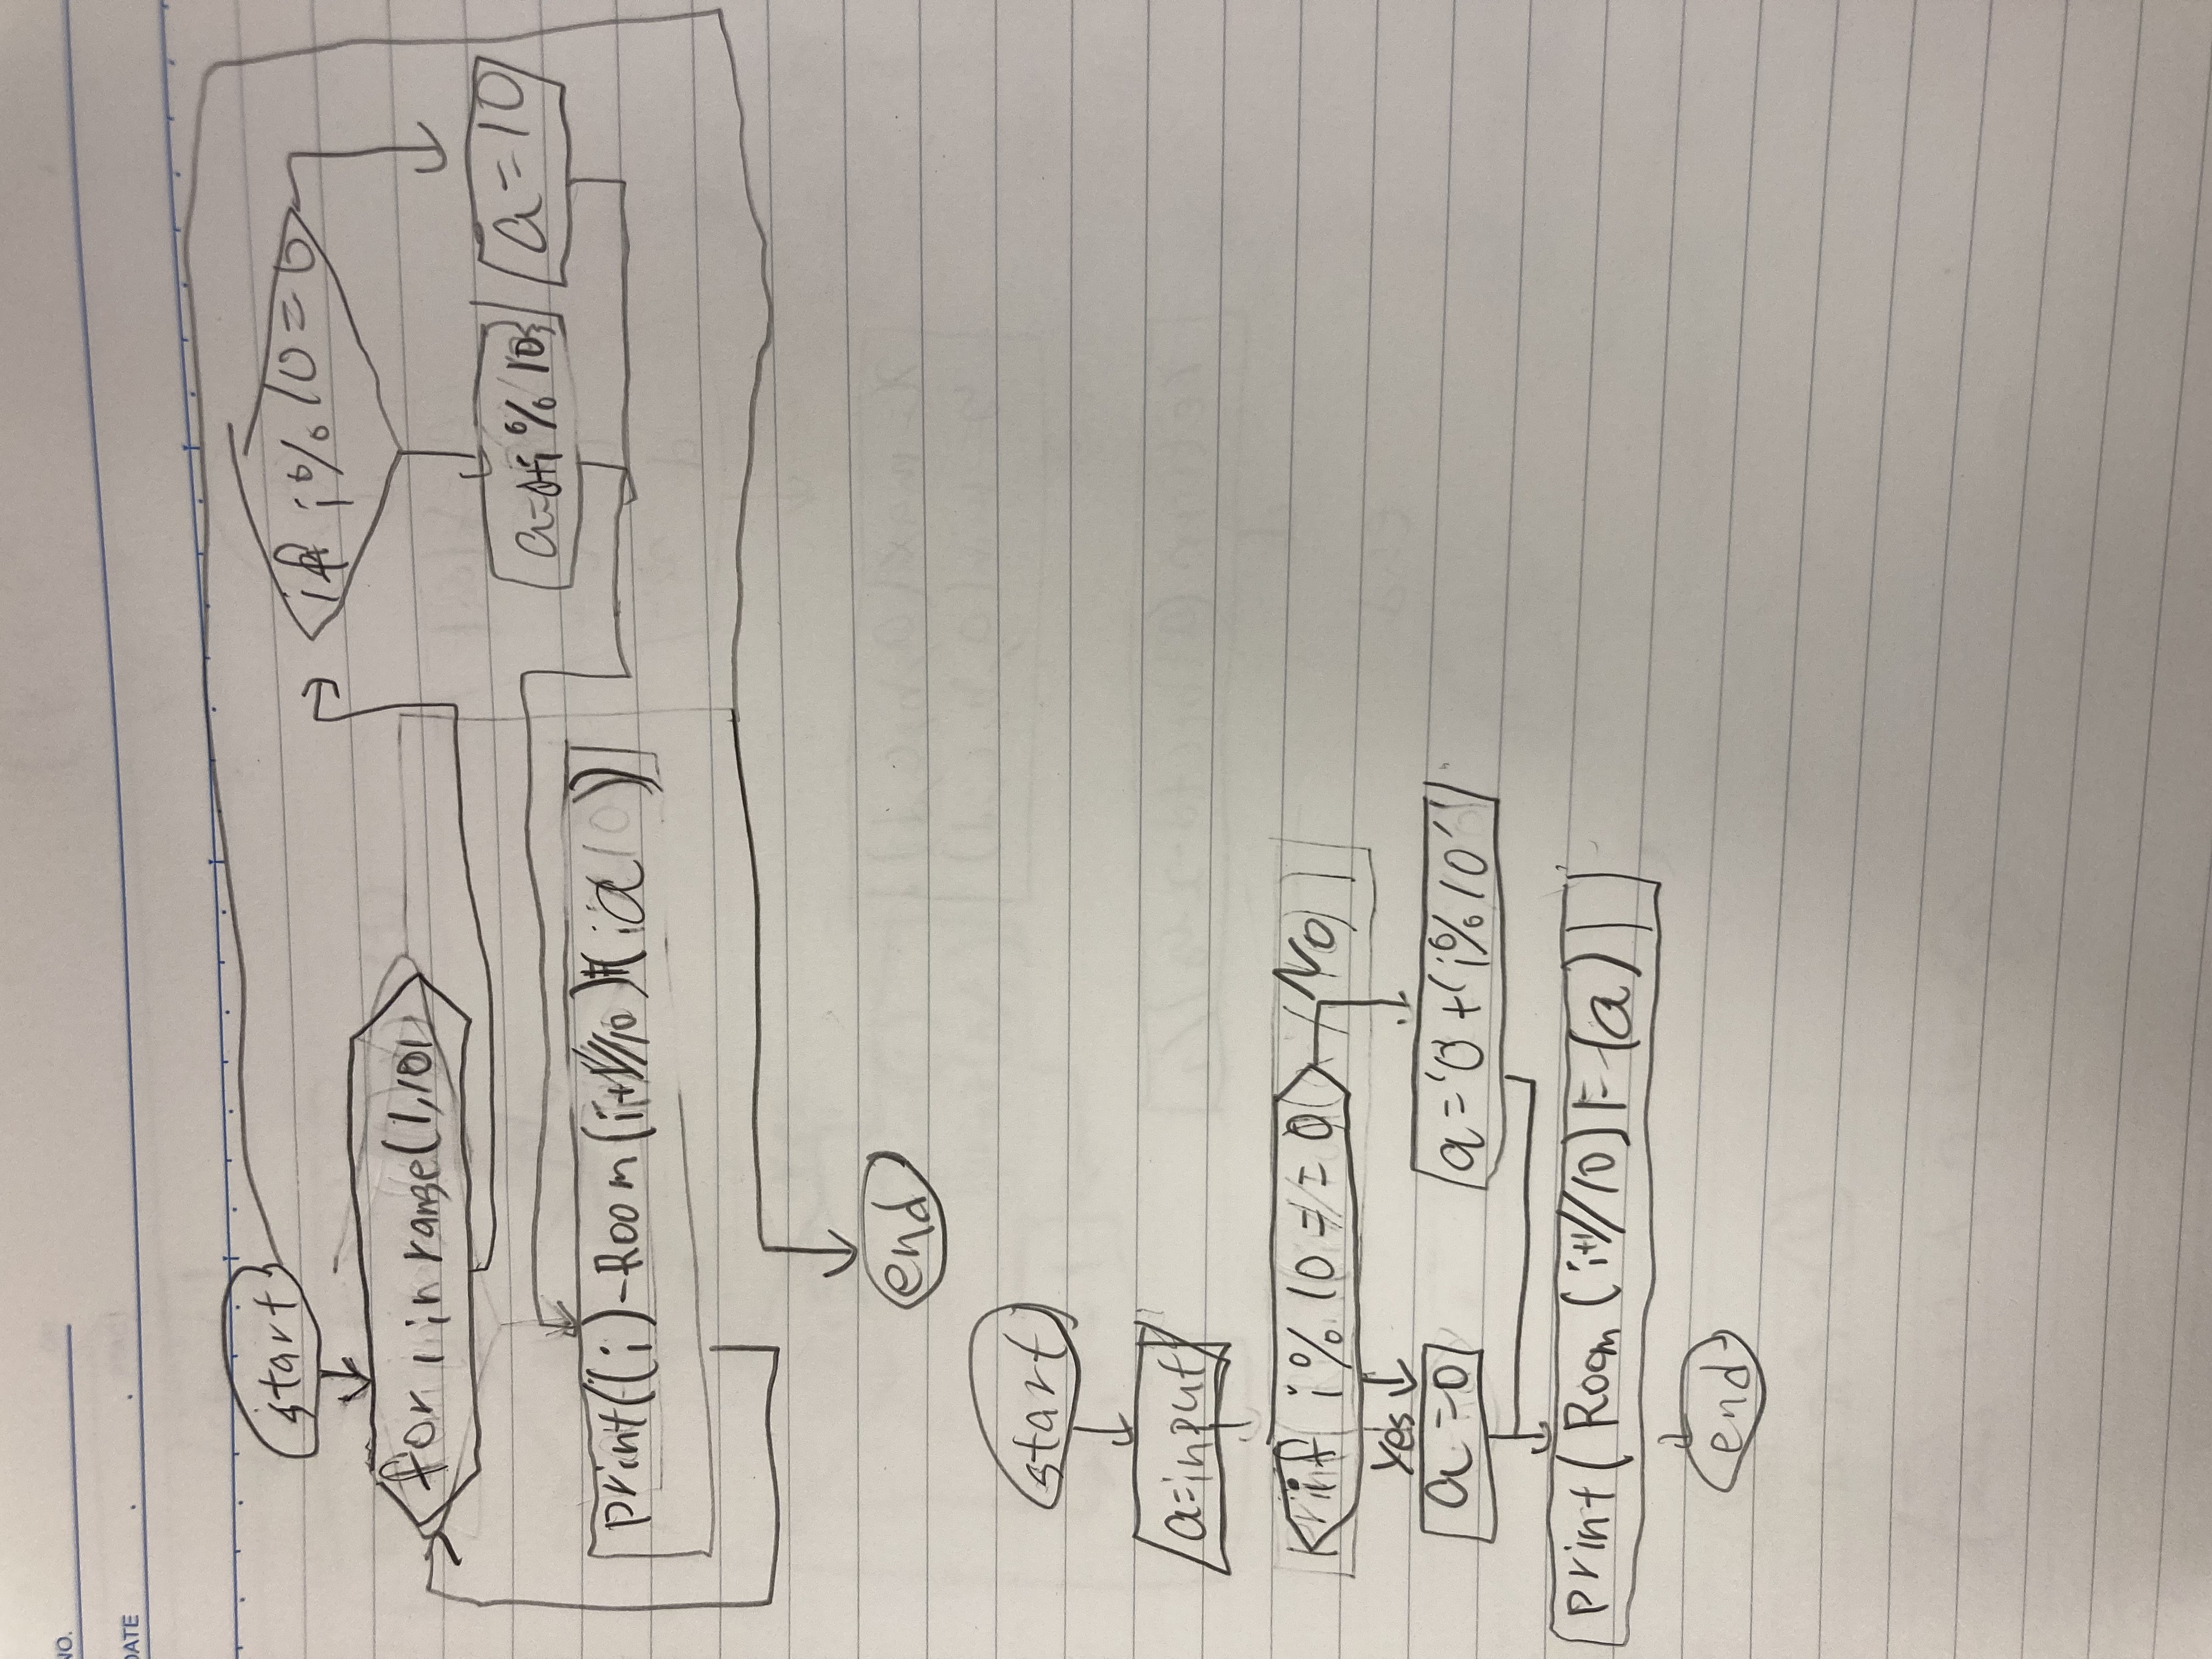 NO.
DATE
start
for i in range(1,101)
if i%10=0
a=0+i%10
a=10
print((i)-Room(i+1//10)(a))
end
start
a=input
if i%10==0
No
Yes
a=0
a='0+(i%10'
print(Room(i+1//10)F-(a)
end